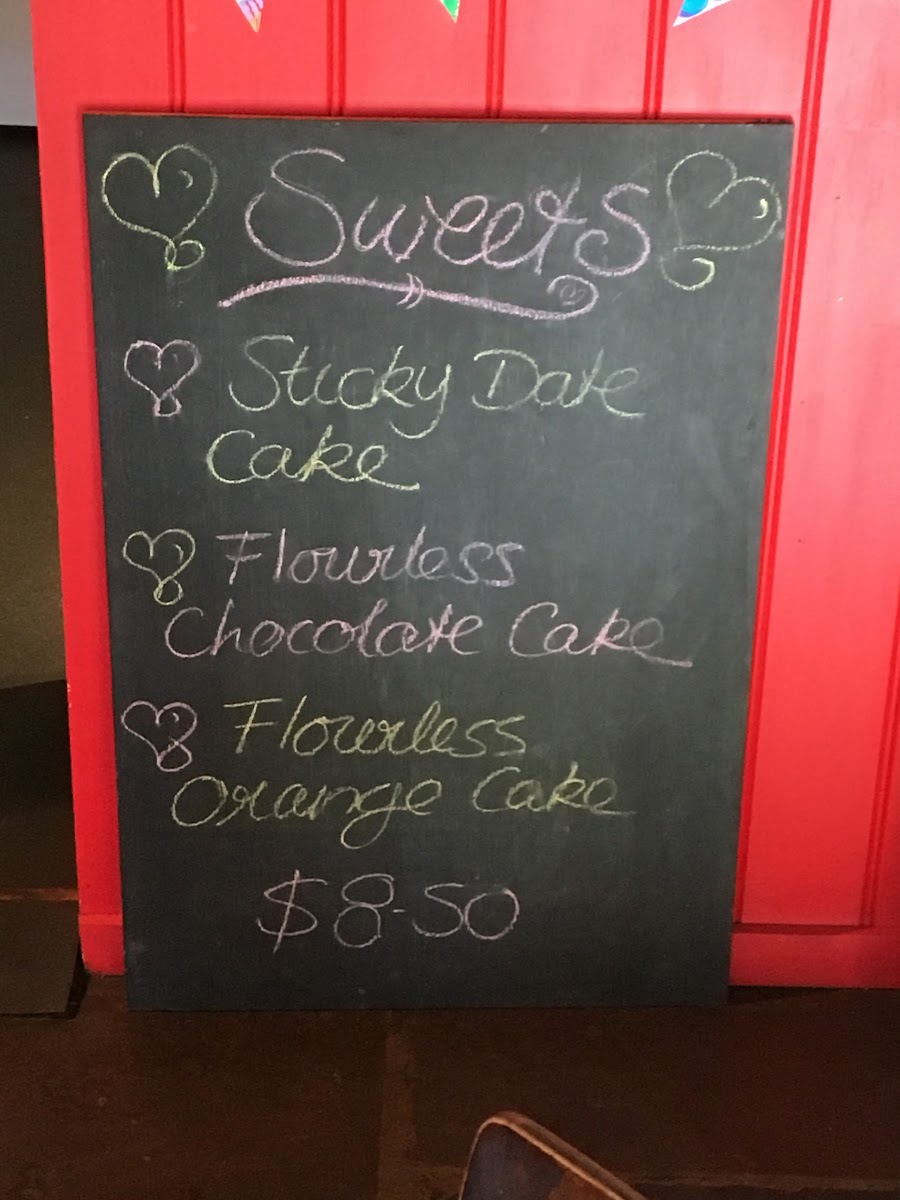 Sweets
Sticky Date
Cake
Flourless
Chocolate Cake
Flourless
Orange Cake
$8-50